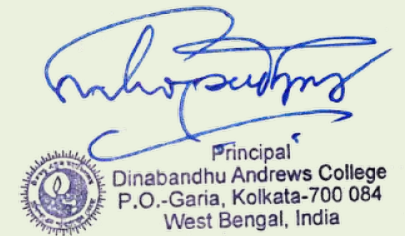 Principal
Dinabandhu Andrews College
P.O.-Garia, Kolkata-700 084
West Bengal, India